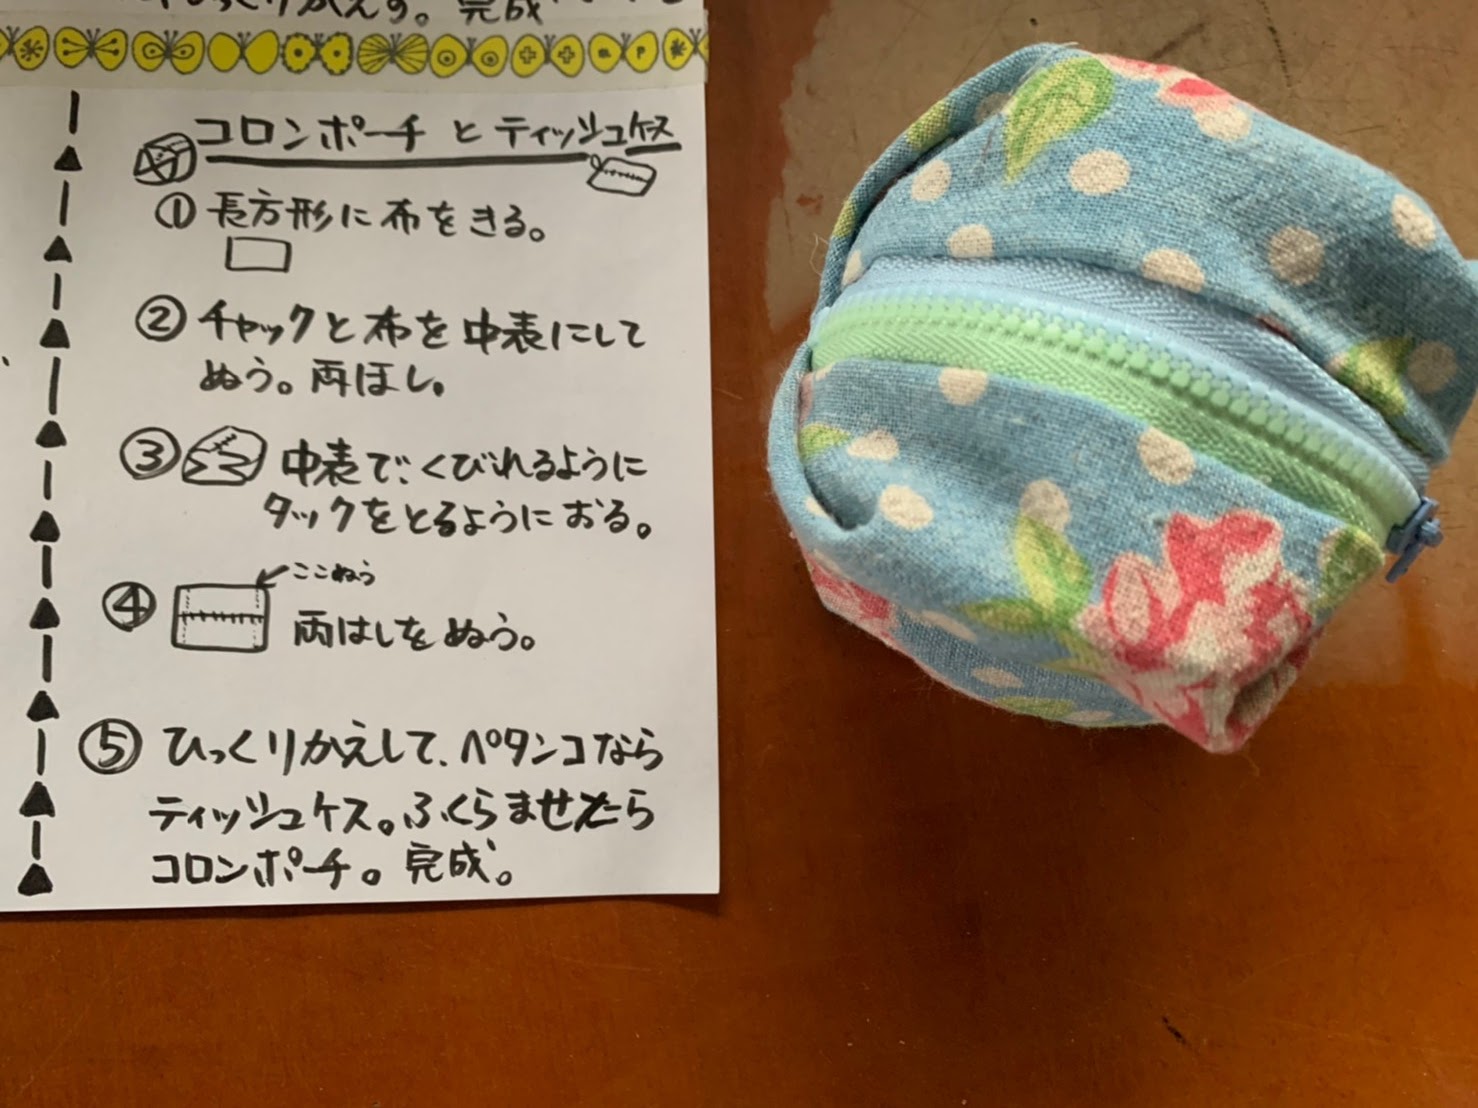 くりかえす。完成
コロンポーチとティッシュケス
① 長方形に布をきる。
② チャックと布を中表にして
ぬう。両はし。
③ 中表で、くびれるように
タックをとるようにおる。
④ ここぬう
両はしをぬう。
⑤ ひっくりかえして、ペタンコなら
ティッシュケス。ふくらませたら
コロンポーチ。完成。